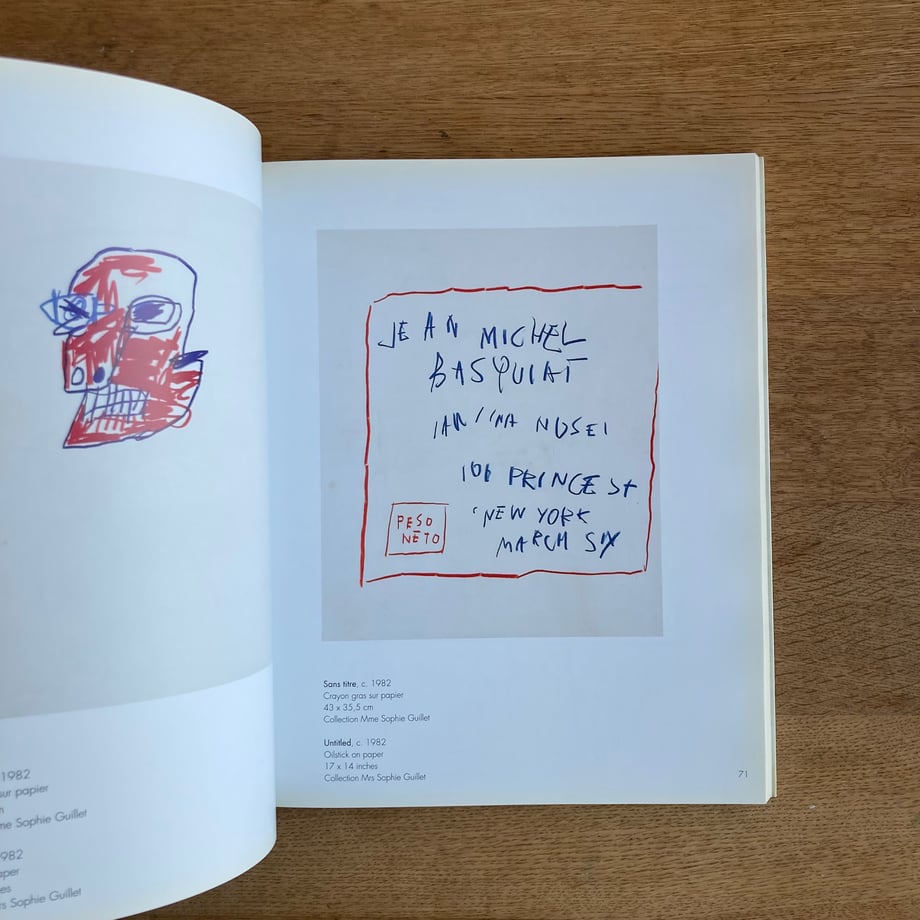 1982
sur papier
me Sophie Guillet
982
aper
es
rs Sophie Guillet
JEAN MICHEL
BASQUIAT
NOSEI
101 PRINCE St
NEW YORK
MARCH SIX
PESO
NETO
Sans titre, c. 1982
Crayon gras sur papier
43 x 35,5 cm
Collection Mme Sophie Guillet
Untitled, c. 1982
Oilstick on paper
17 x 14 inches
Collection Mrs Sophie Guillet
71